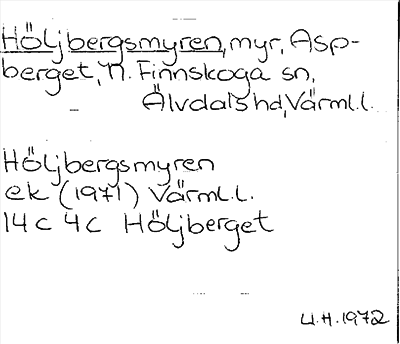 Höljbergsmyren, myr, Asp-
berget, N. Finnskoga sn,
Älvdals hd, Värml.l.
Höljbergsmyren
ek (1971) Värml.l.
14c 4c Höljberget
U.H. 1972